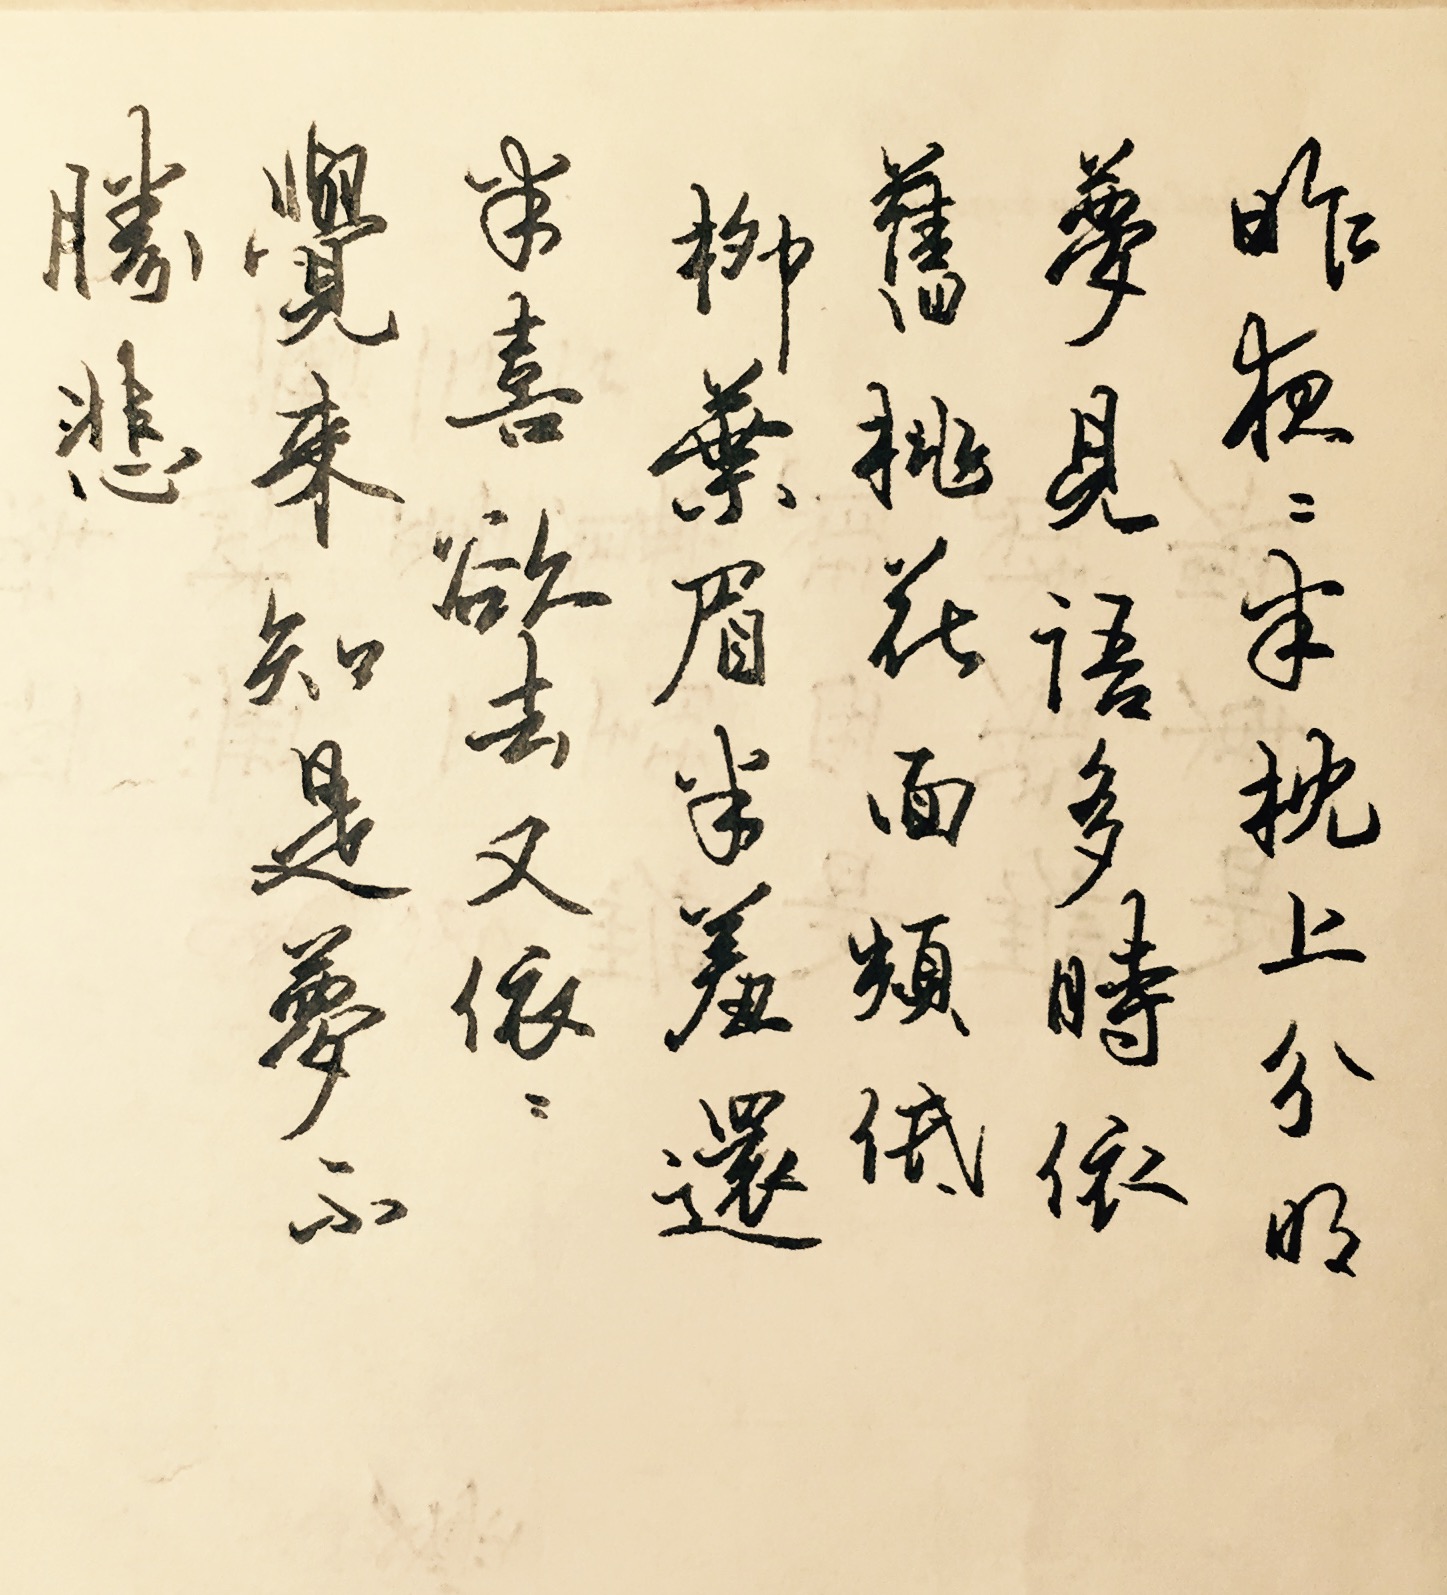 昨夜〻半枕上分明
夢見語多時依
舊桃花面頻低
柳葉眉半羞還
半喜欲去又依〻
覺來知是夢不
勝悲